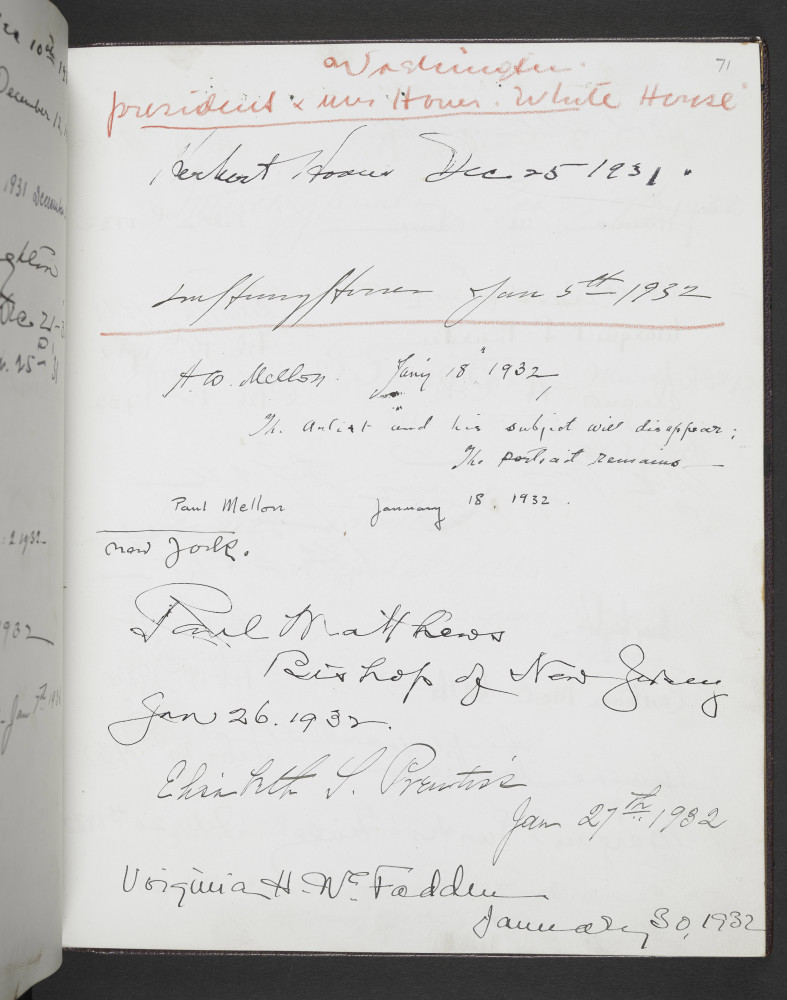 71
Washington.
president & mrs Hover. White House
Herbert Hoover Dec 25 1931.
Lou Henry Hoover Jan 5th 1932
A. W. Mellon. Jan'y 18" 1932
The artist and his subject will disappear;
The portrait remains
Paul Mellon January 18, 1932.
new York.
Paul Matthews
Bishop of New Jersey
Jan 26. 1932.
Elisabeth S. Prentiss
Jan 27th 1932
Virginia H. McFadden
January 30, 1932
10th
December 12,
1931 December
Dec 21-3
1932
932
Jan 7th